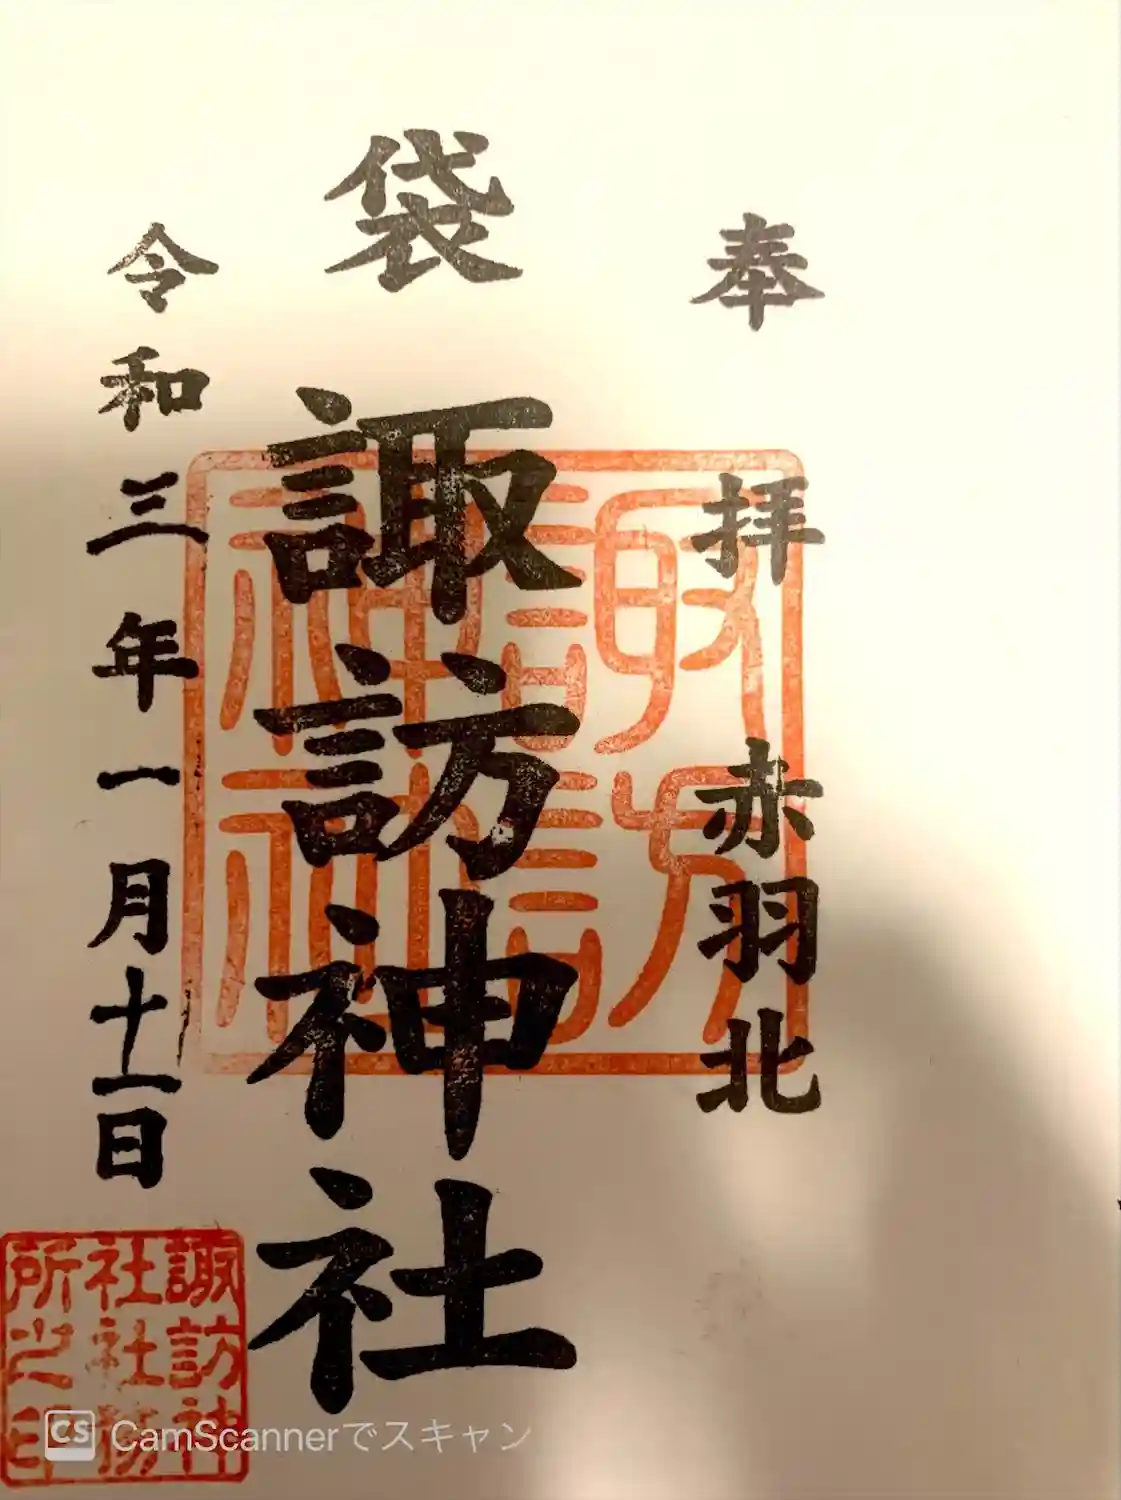 奉拝 赤羽北
袋 諏訪神社
令和三年一月十一日
諏訪
神社
諏訪神
社社務
所之印
CS CamScannerでスキャン